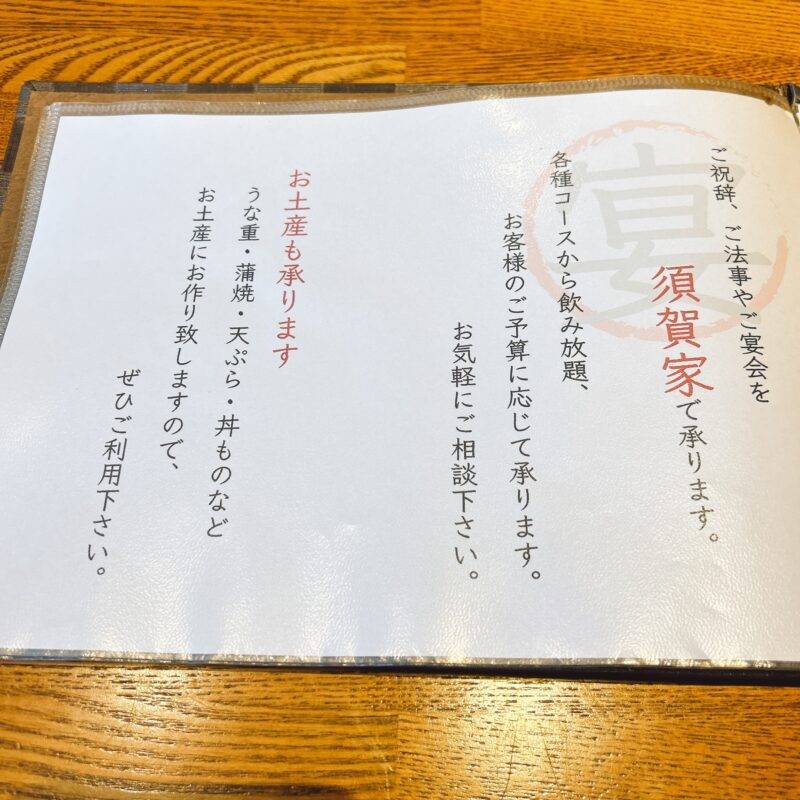 宴
ご祝辞、ご法事やご宴会を
須賀家で承ります。
各種コースから飲み放題、
お客様のご予算に応じて承ります。
お気軽にご相談下さい。
お土産も承ります
うな重・蒲焼・天ぷら・丼ものなど
お土産にお作り致しますので、
ぜひご利用下さい。